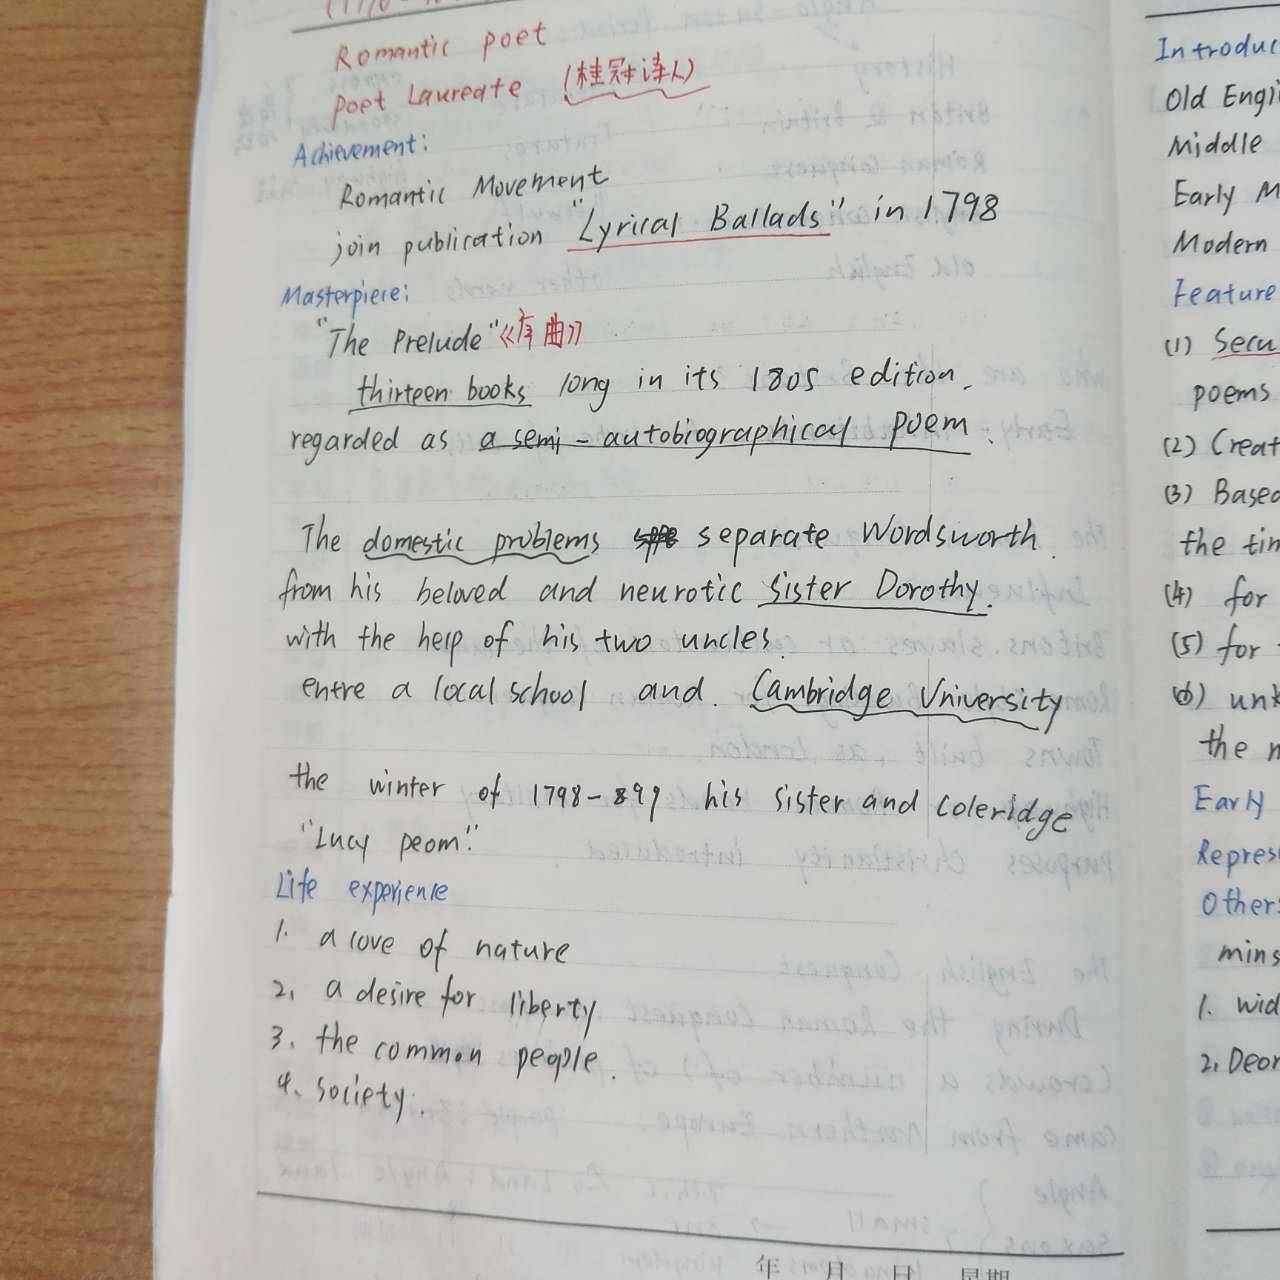 Romantic poet
Poet Laureate (桂冠诗人)
Achievement:
Romantic Movement
join publication "Lyrical Ballads" in 1798
Masterpiere:
"The Prelude"《序曲》
thirteen books long in its 1805 edition.
regarded as a semi-autobiographical poem.
The domestic problems separate Wordsworth.
from his beloved and neurotic sister Dorothy.
with the help of his two uncles.
entre a local school and. Cambridge University
the winter of 1798-99 his sister and Coleridge
"Lucy peom."
Life experience
1. a love of nature
2. a desire for liberty
3. the common people.
4. society.
年 月 日 星期
Introduc
Old Engl
Middle
Early M
Modern
Feature
(1) Secu
poems
(2) Creat
(3) Based
the tim
(4) for
(5) for
(6) unk
the
Early
Repres
Others
mins
1. wid
2. Deor